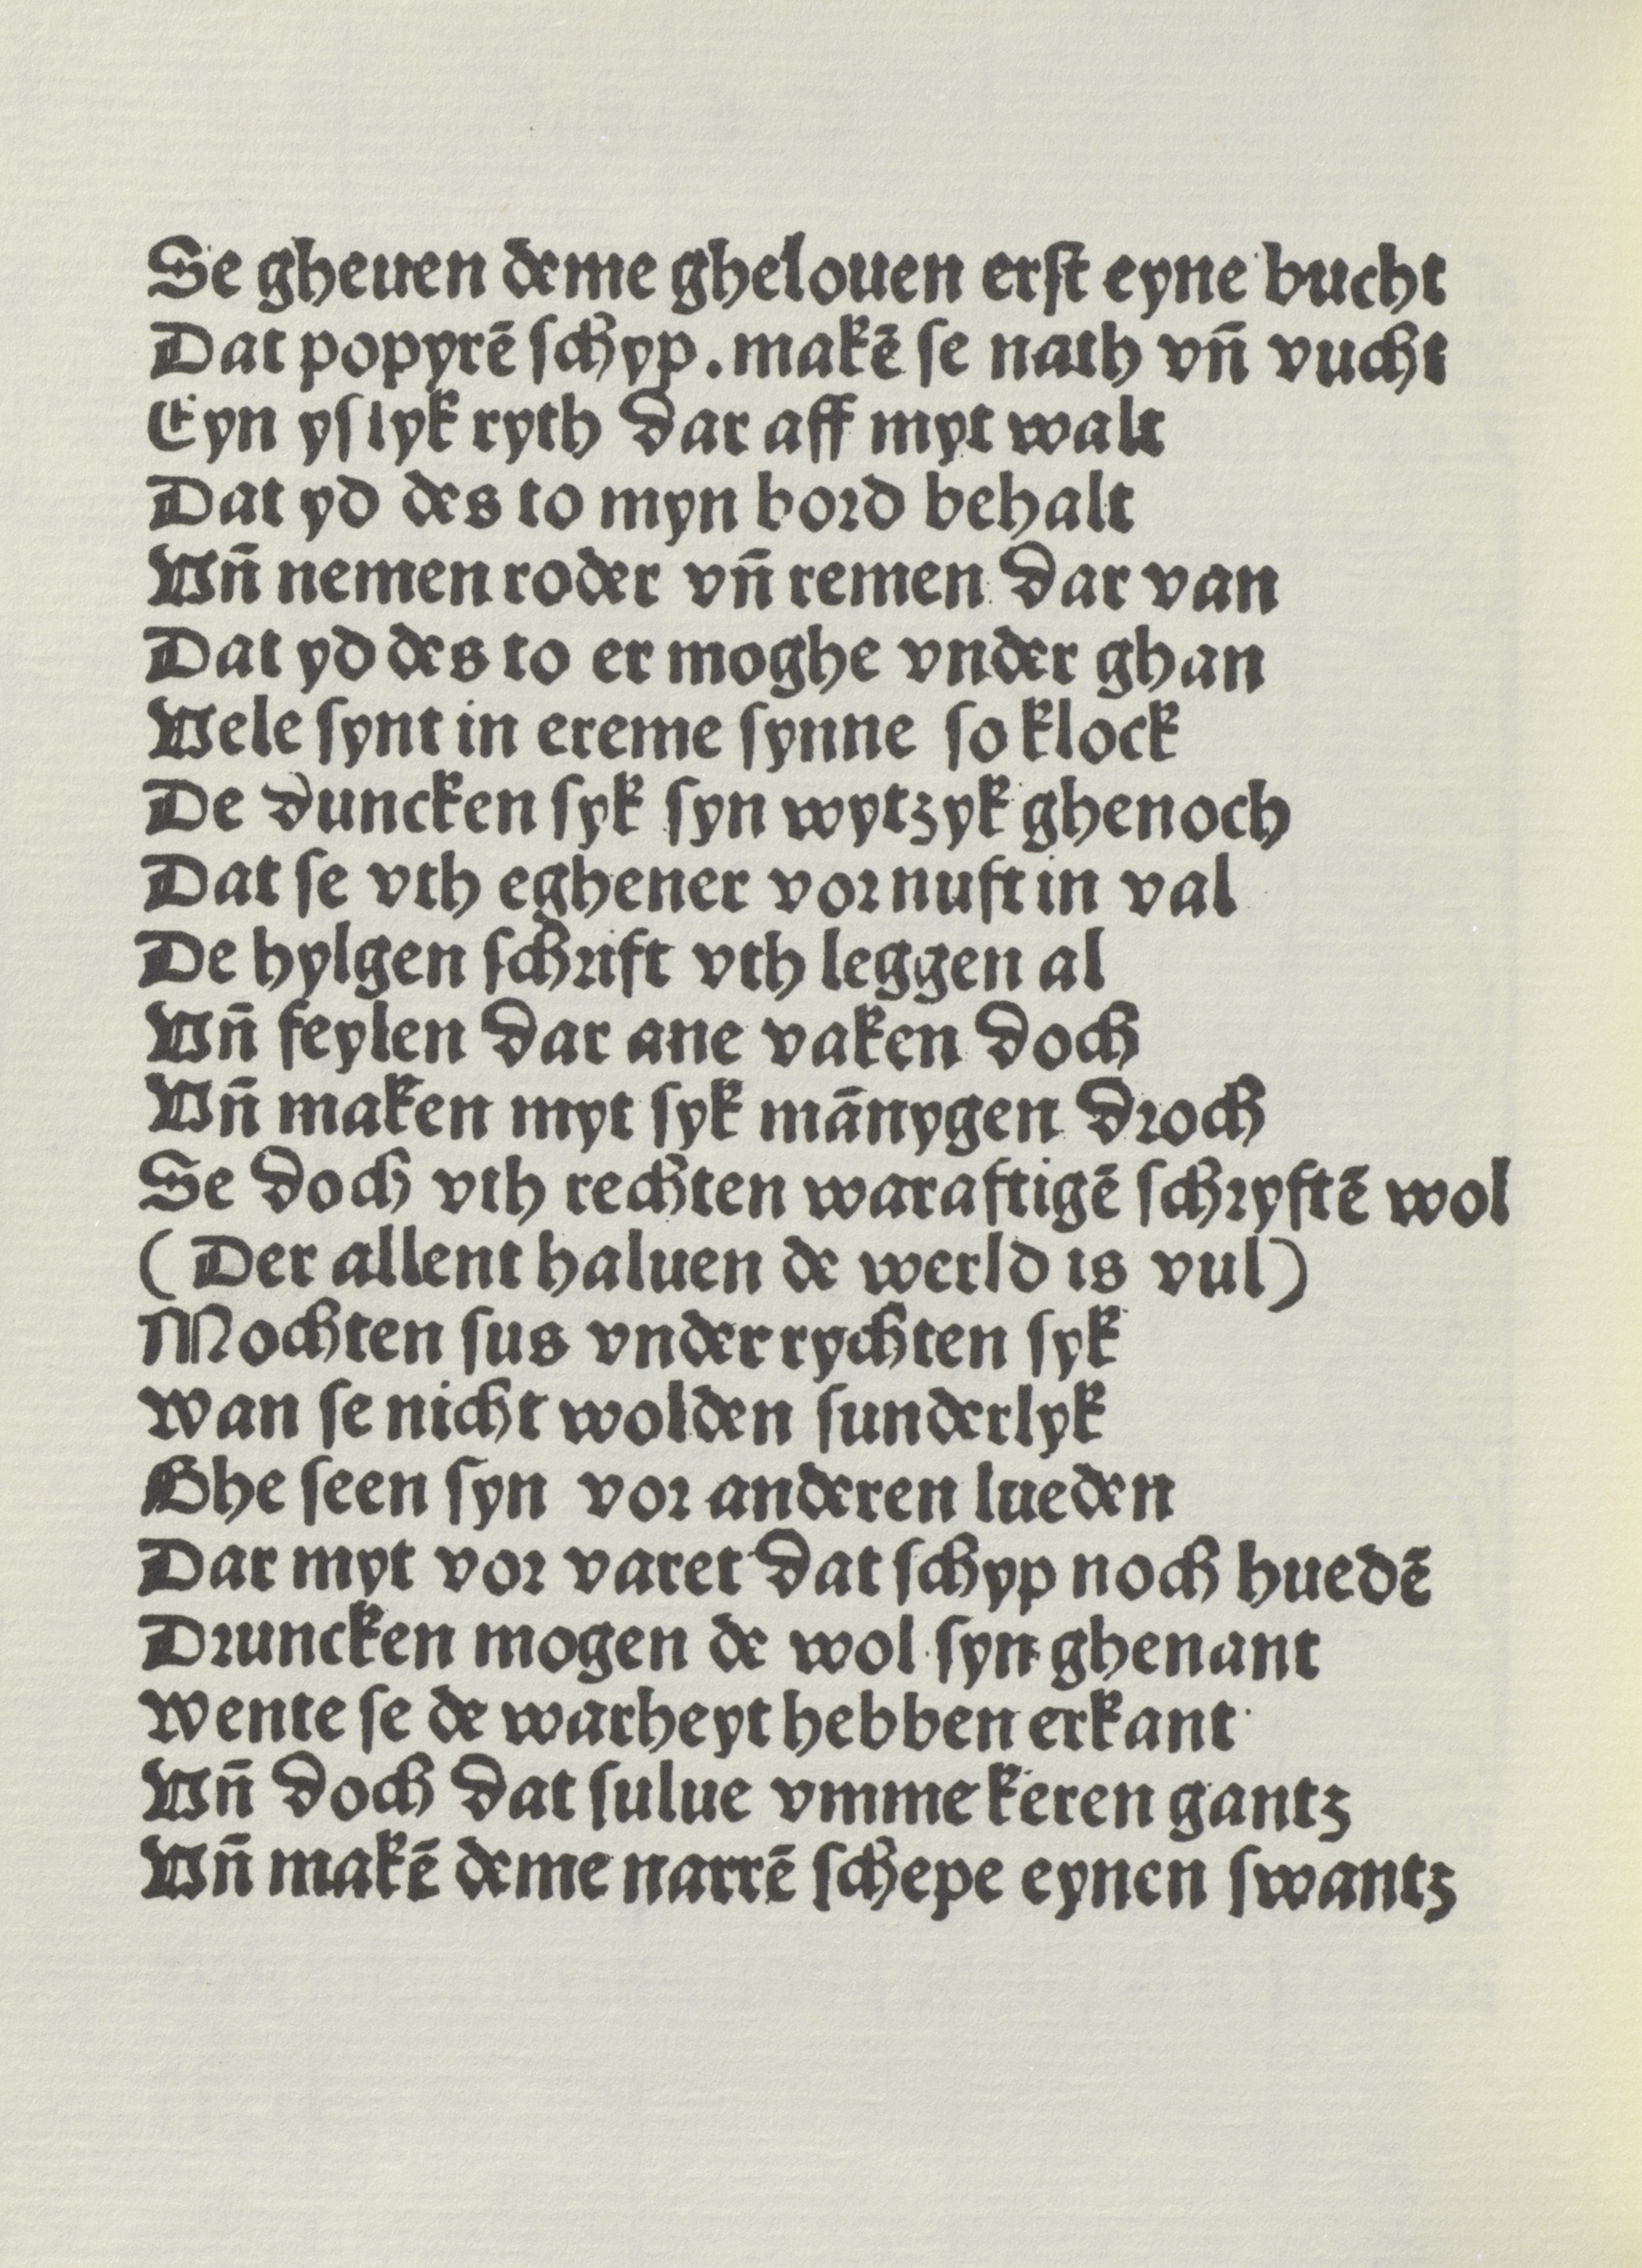 Se gheuen deme ghelouen erſt eyne bucht
Dat popyrē ſchyp . makē ſe nath vñ vucht
Eyn yſlyk ryth dar aff myt walt
Dat yd des to myn boꝛd behalt
Vñ nemen roder vñ remen dar van
Dat yd des to er moghe vnder ghan
Vele ſynt in ereme ſynne ſo klock
De duncken ſyk ſyn wytzyk ghenoch
Dat ſe vth eghener voꝛnuft in val
De hylgen ſchꝛift vth leggen al
Vñ feylen dar ane vaken doch
Vñ maken myt ſyk mānygen dꝛoch
Se doch vth rechten waraftigē ſchꝛyftē wol
( Der allent haluen de werld is vul)
Mochten ſus vnderrychten ſyk
Wan ſe nicht wolden ſunderlyk
Ghe ſeen ſyn voꝛ anderen lueden
Dar myt voꝛ varet dat ſchyp noch huedē
Dꝛuncken mogen de wol ſyn ghenant
Wente ſe de warheyt hebben erkant
Vñ doch dat ſulue vmmekeren gantz
Vñ makē deme narrē ſchepe eynen ſwantz